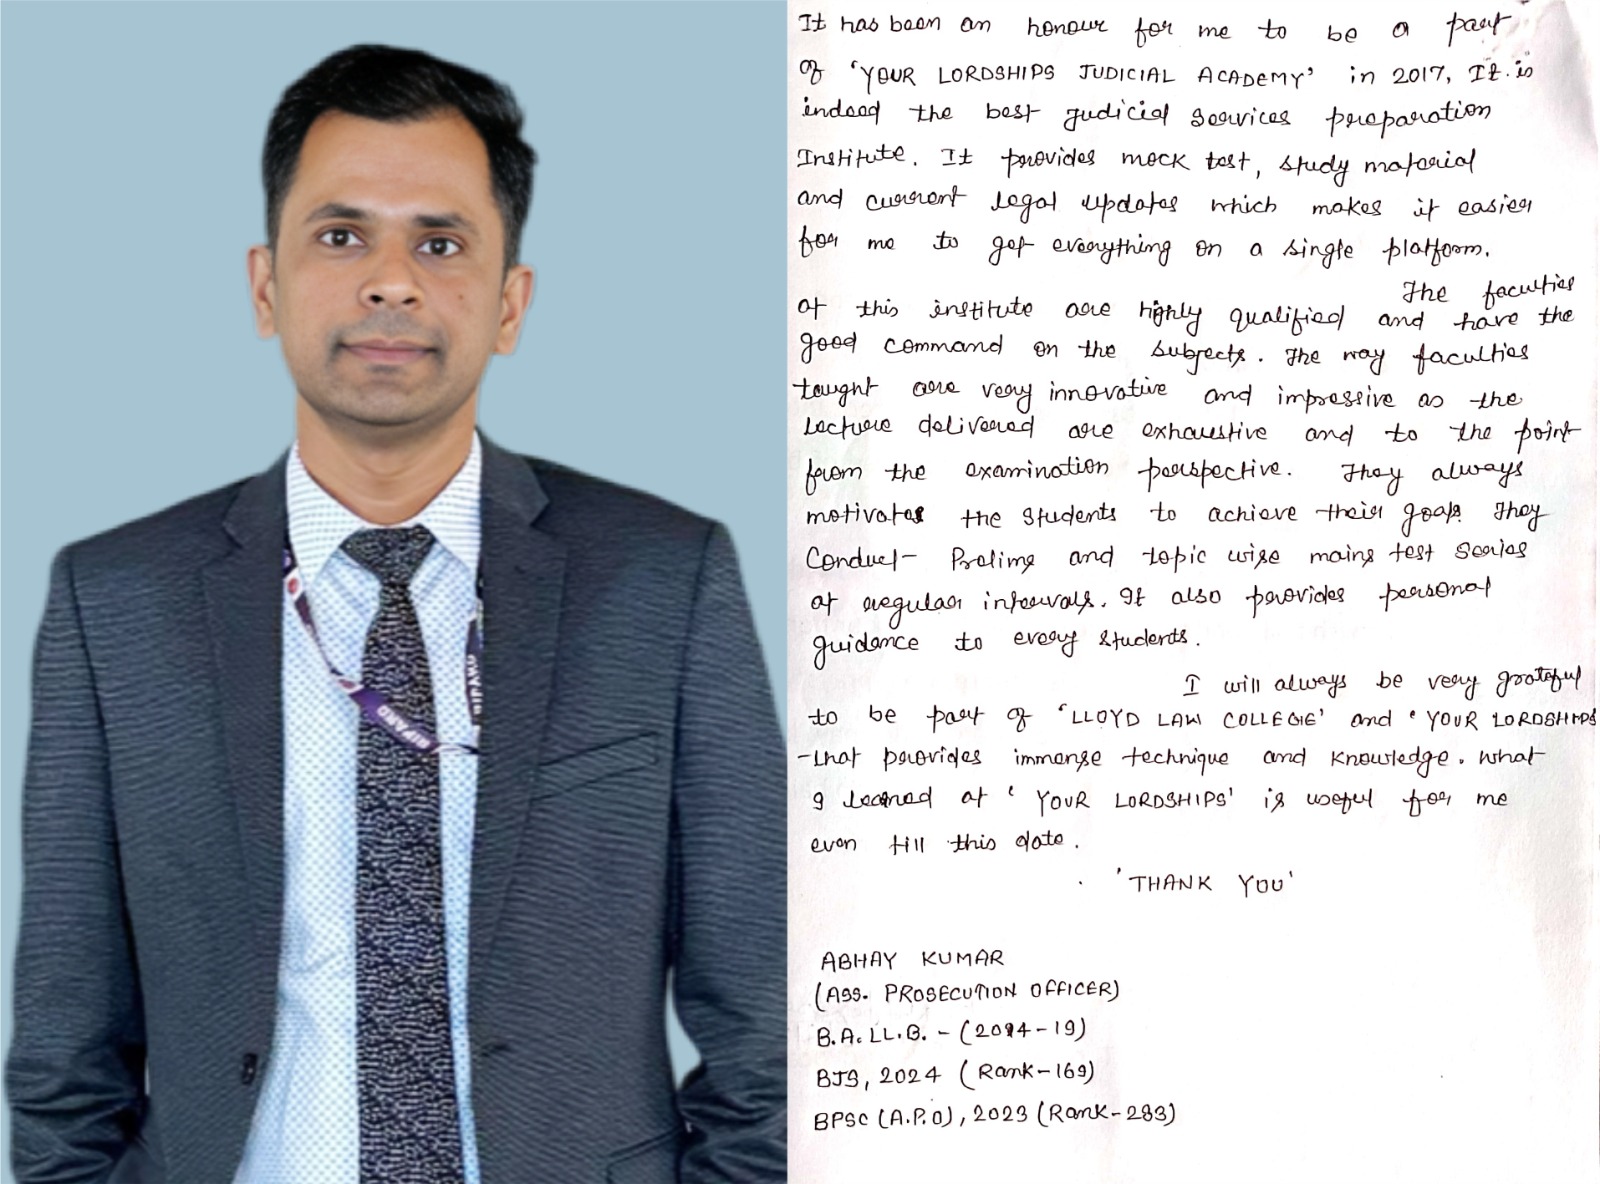 It has been an honour for me to be a part
of 'YOUR LORDSHIPS JUDICIAL ACADEMY' in 2017. It is
indeed the best judicial services preparation
Institute. It provides mock test, study material
and current legal updates which makes it easier
for me to get everything on a single platform.
The faculties
at this institute are highly qualified and have the
good command on the subjects. The way faculties
taught are very innovative and impressive as the
lecture delivered are exhaustive and to the point
from the examination perspective. They always
motivates the students to achieve their goals. They
Conduct Prelims and topic wise mains test series
at regular intervals. It also provides personal
guidance to every students.
I will always be very grateful
to be part of 'LLOYD LAW COLLEGE' and 'YOUR LORDSHIPS
that provides immense technique and knowledge. What
I learned at 'YOUR LORDSHIPS' is useful for me
even till this date.
'THANK YOU'
ABHAY KUMAR
(ASS. PROSECUTION OFFICER)
B.A.LL.B. - (2014-19)
BJS, 2024 (Rank-169)
BPSC (A.P.O), 2023 (Rank-283)